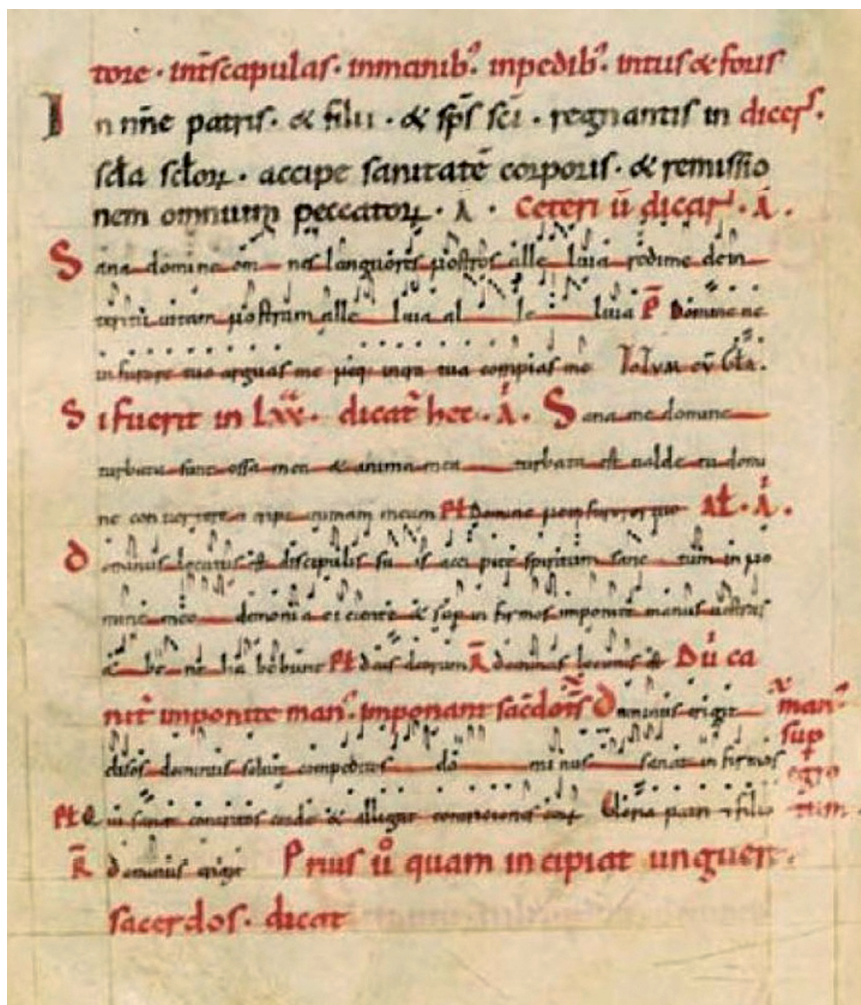 tore · int̄scapulas · inmanib᷒ · inpedib᷒ · intus & foris
In nn̄e patris · & filii · & sp̄s sc̄i · regnantis in dicer̄ ·
sc̄la sc̄lorꝝ · accipe sanitatē corporis · & remissio
nem omnium peccatorꝝ · A · Ceteri ū dicar̄ · A ·
Sana domine om nes languores nostros alle luia redime dein
teritu uitam nostram alle luia al le luia P̄ Domine ne
in furore tuo arguas me neq; in ira tua corripias me
Si fuerit in lxx · dicat̄ hec · A · Sana me domine
turbata sunt ossa mea & anima mea turbata est ualde tu domi
ne conuertere & eripe animam meam Domine Al̄ · A ·
Dominus locutus est discipulis su is acci pite spiritum sanc tum in no
mine meo demonia ei cierte & sup in firmos imponite manus uestras
& be ne ha bebunt Ps̄ deus deorum R̄ dominus locutus est Dū ca
nit̄ imponite man᷒ · imponant sac̄dotes Dominus erigit man᷒
elisos dominus soluit compeditos do minus sanat in firmos sup
egro
Ps̄ Qui sanat contritos corde & alligat contriciones eorꝝ Gloria patri & filio tum ·
R̄ dominus erigit Prius ů quam incipiat unguer̄ ·
sacerdos · dicat